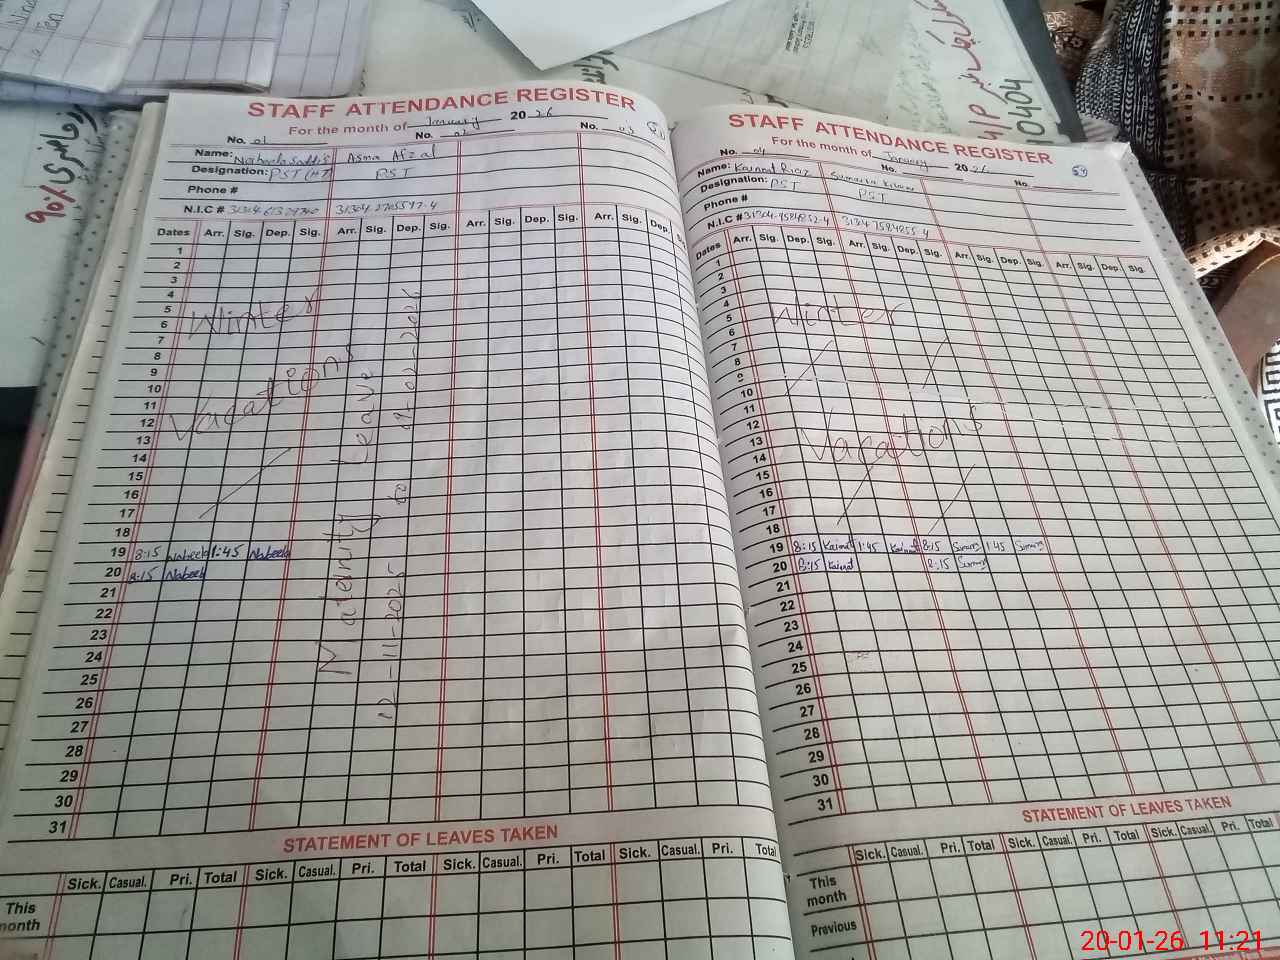 STAFF ATTENDANCE REGISTER
For the month of January 2026
No. 01 No. 02 No. 03
Name: Asma Afzal
Designation: PST (HT) PST
Phone #
N.I.C # 31304
Dates Arr. Sig. Dep. Sig. Arr. Sig. Dep. Sig. Arr. Sig. Dep. Sig. Arr. Sig. Dep.
1
2
3
4
5
6
7
8
9
10
11
12
13
14
15
16
17
18
Winter
Vacations
Maternity Leave
12-11-2025 to
19 8:15 Nabeela 1:45 Nabeela
20 8:15 Nabeela
21
22
23
24
25
26
27
28
29
30
31
STATEMENT OF LEAVES TAKEN
Sick. Casual. Pri. Total Sick. Casual. Pri. Total Sick. Casual. Pri. Total
This month
STAFF ATTENDANCE REGISTER
For the month of January 2026
No. 04 No. No.
Name: Kainat Riaz
Designation: PST PST
Phone #
N.I.C #
Dates Arr. Sig. Dep. Sig. Arr. Sig. Dep. Sig. Arr. Sig. Dep. Sig. Arr. Sig. Dep. Sig.
1
2
3
4
5
6
7
8
9
10
11
12
13
14
15
16
17
18
Winter
Vacations
19 8:15 Kainat 1:45 Kainat 8:15 1:45
20 8:15 Kainat 8:15
21
22
23
24
25
26
27
28
29
30
31
STATEMENT OF LEAVES TAKEN
Sick. Casual. Pri. Total Sick. Casual. Pri. Total
This month
Previous
20-01-26 11:21